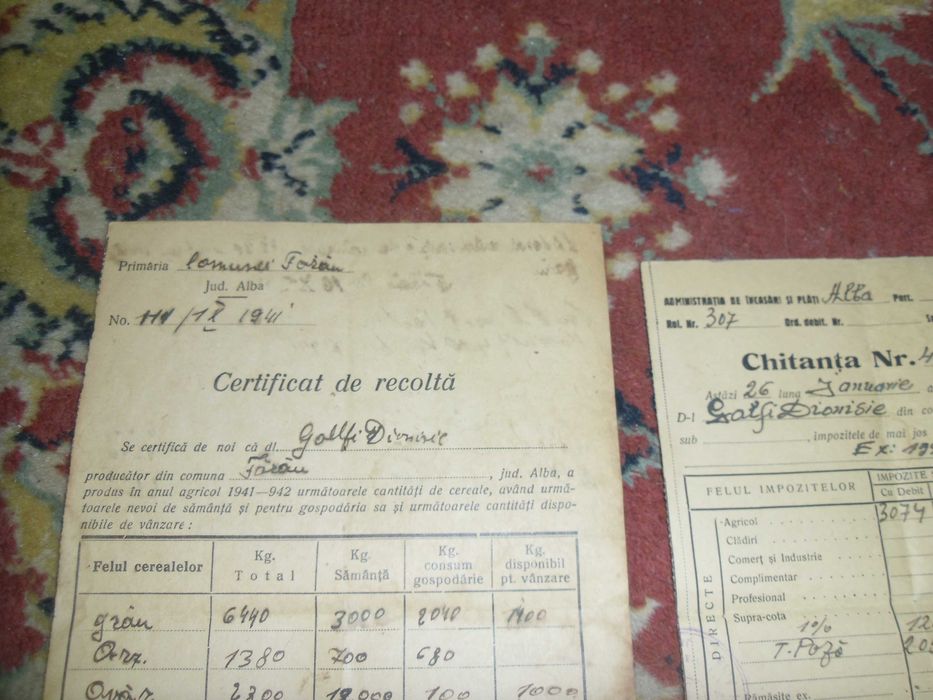 Primăria Comunei Fărău
Jud. Alba
No. 111/IX 1941
Certificat de recoltă
Se certifică de noi că dl. Gallfi Dionisie
producător din comuna Fărău, jud. Alba, a
produs în anul agricol 1941—942 următoarele cantități de cereale, având urmă-
toarele nevoi de sămânță și pentru gospodăria sa și următoarele cantități dispo-
nibile de vânzare :
Felul cerealelor Kg. Total Kg. Sămânță Kg. consum gospodărie Kg. disponibil pt. vânzare
grâu 6440 3000 2040 1400
Orz. 1380 700 680
Ovăz 2300 100 1000
ADMINISTRAȚIA DE ÎNCASĂRI ȘI PLĂȚI Alba Perc.
Rol. Nr. 307 Ord. debit. Nr.
Chitanța Nr. 4
Astăzi 26 luna Januarie
D-l Galfi Dionisie din co
sub , impozitele de mai jos
Ex: 19
FELUL IMPOZITELOR IMPOZITE
Cu Debit
DIRECTE
Agricol 3074
Clădiri
Comerț și Industrie
Complimentar
Profesional
Supra-cota
1% 12
T. Pază 20
Rămășite ex.